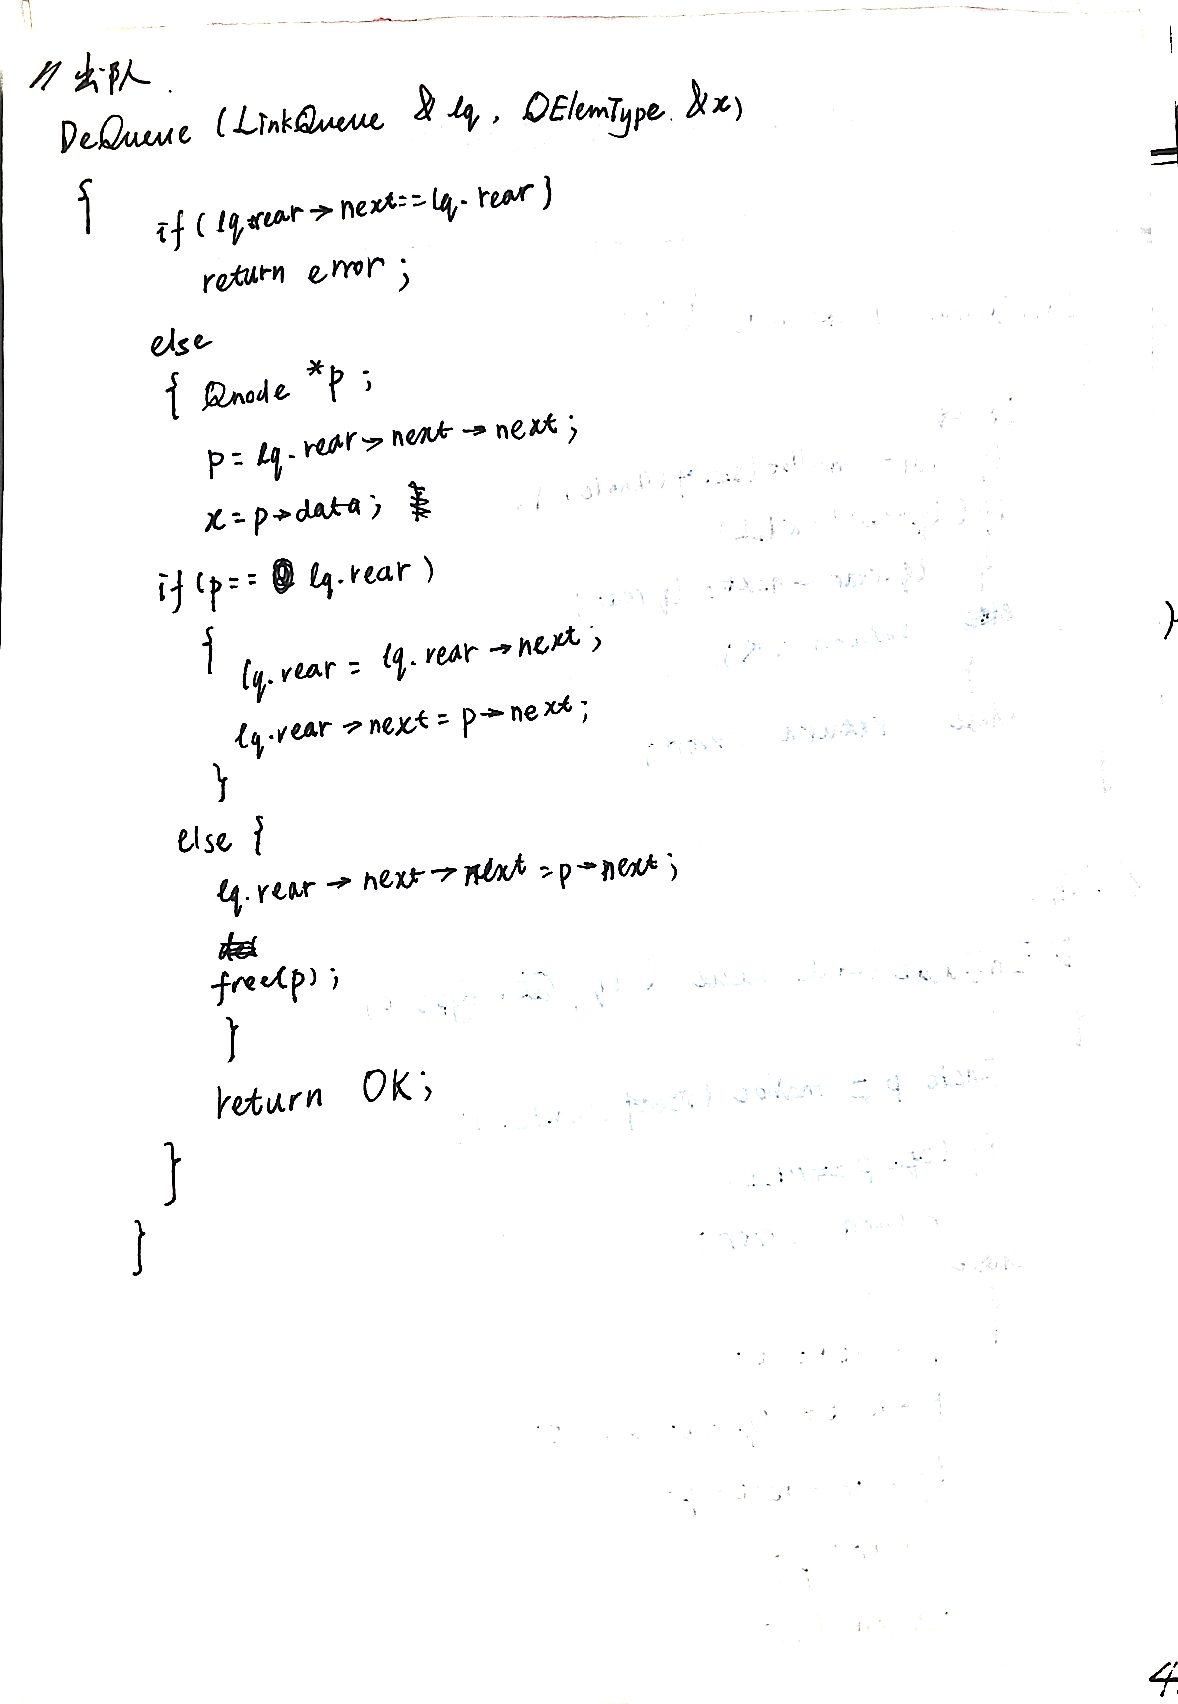 // 出队.
DeQueue (LinkQueue & lq, QElemType &x)
{
if(lq.rear→next==lq.rear)
return error;
else
{ Qnode *p;
p=lq.rear→next→next;
x=p→data;
if(p== lq.rear)
{
lq.rear = lq.rear→next;
lq.rear→next=p→next;
}
else {
lq.rear→next→next=p→next;
free(p);
}
return OK;
}
}
4.